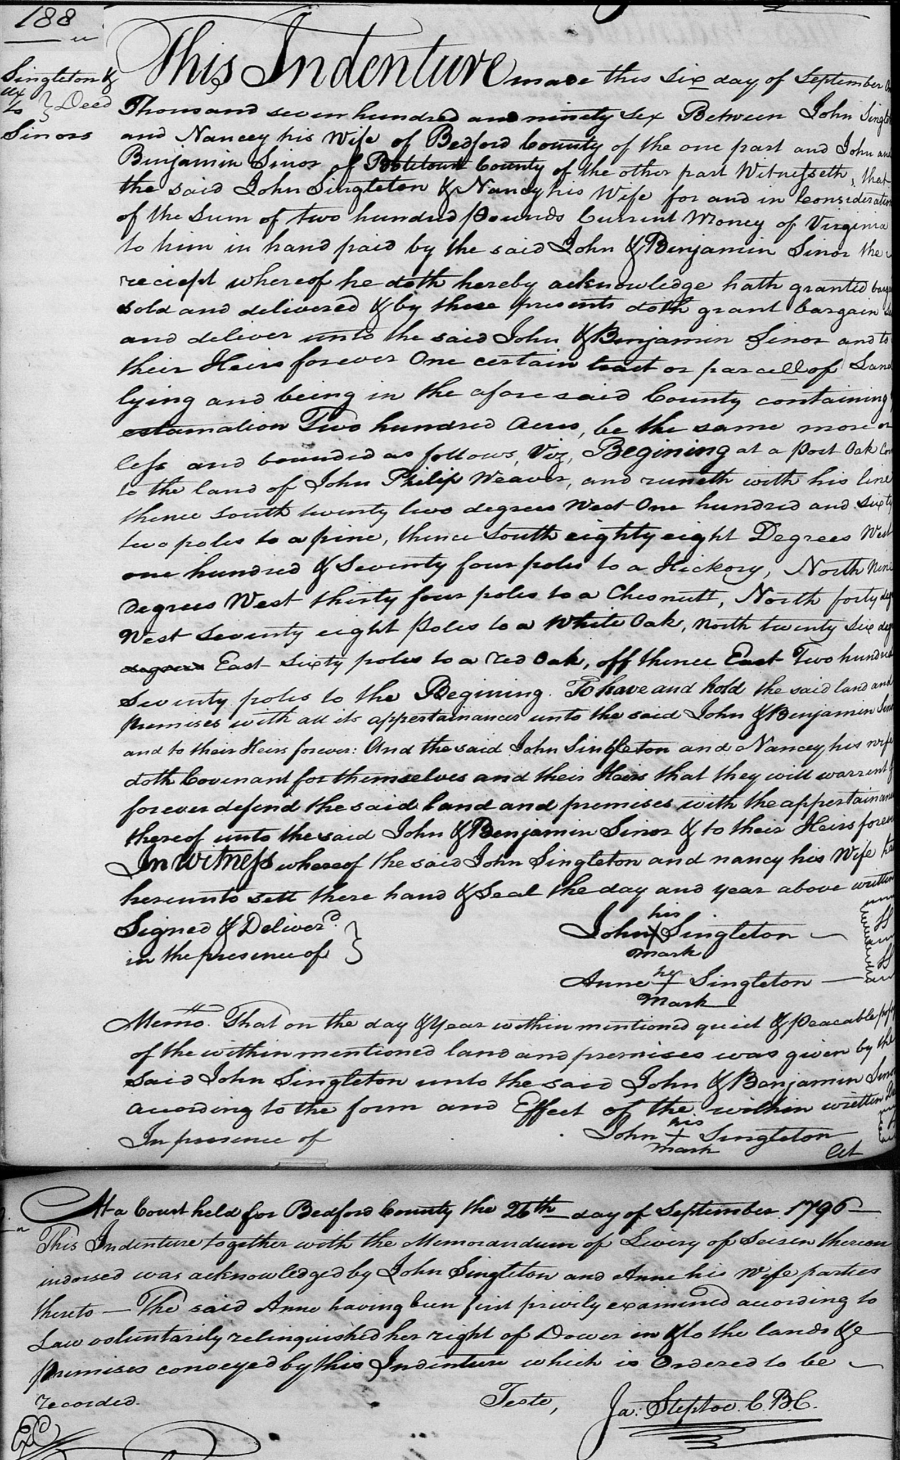 188
Singleton &
ux
to } Deed
Sinors
This Indenture made this six day of September
Thousand seven hundred and ninety six Between John
and Nancey his Wife of Bedford County of the one part and John
Benjamin Sinor of Botetourt County of the other part Witnesseth, that
the said John Singleton & Nancy his Wife for and in Consideration
of the Sum of two hundred pounds Current Money of Virginia
to him in hand paid by the said John & Benjamin Sinor the
reciept whereof he doth hereby acknowledge hath granted
sold and delivered & by these presents doth grant bargain
and deliver unto the said John & Benjamin Sinor and to
their Heirs forever One certain tract or parcell of Land
lying and being in the afore said County containing
estamation Two hundred Acres, be the same more or
less and bounded as follows, Viz, Begining at a Post Oak
to the land of John Philip Weaver, and runeth with his line
thence South twenty two degrees West One hundred and sixty
two poles to a pine, thence South eighty eight Degrees West
one hundred & Seventy four poles to a Hickory, North Nine
Degrees West thirty four poles to a Chesnutt, North forty
West Seventy eight Poles to a White Oak, North twenty Six
degrees East Sixty poles to a red oak, off thence East Two hundred
Seventy poles to the Begining. To have and hold the said land and
premises with all its appertainances unto the said John & Benjamin
and to their Heirs forever: And the said John Singleton and Nancey his wife
doth Covenant for themselves and their Heirs that they will warrent
forever defend the said land and premises with the appertainances
thereof unto the said John & Benjamin Sinor & to their Heirs forever
In Witness whereof the said John Singleton and nancy his Wife
hereunto sett there hand & Seal the day and year above written
Signed & Deliver'd }
in the presence of
his
John X Singleton
mark
her
Anne + Singleton
Mark
Memo. That on the day & Year within mentioned quiet & peacable
of the within mentioned land and premises was given by the
said John Singleton unto the said John & Benjamin
acording to the form and Effect of the within written
In presence of
his
John + Singleton
mark
At a Court held for Bedford County the 26th day of September 1796
This Indenture together with the Memorandum of Livery of Seisen thereon
indorsed was acknowledged by John Singleton and Anne his Wife parties
thereto — The said Anne having been first privily examined acording to
Law voluntarily relinquished her right of Dower in & to the lands &c
premises conveyed by this Indenture which is Ordered to be
recorded.
Teste,
Ja: Steptoe. C B C.